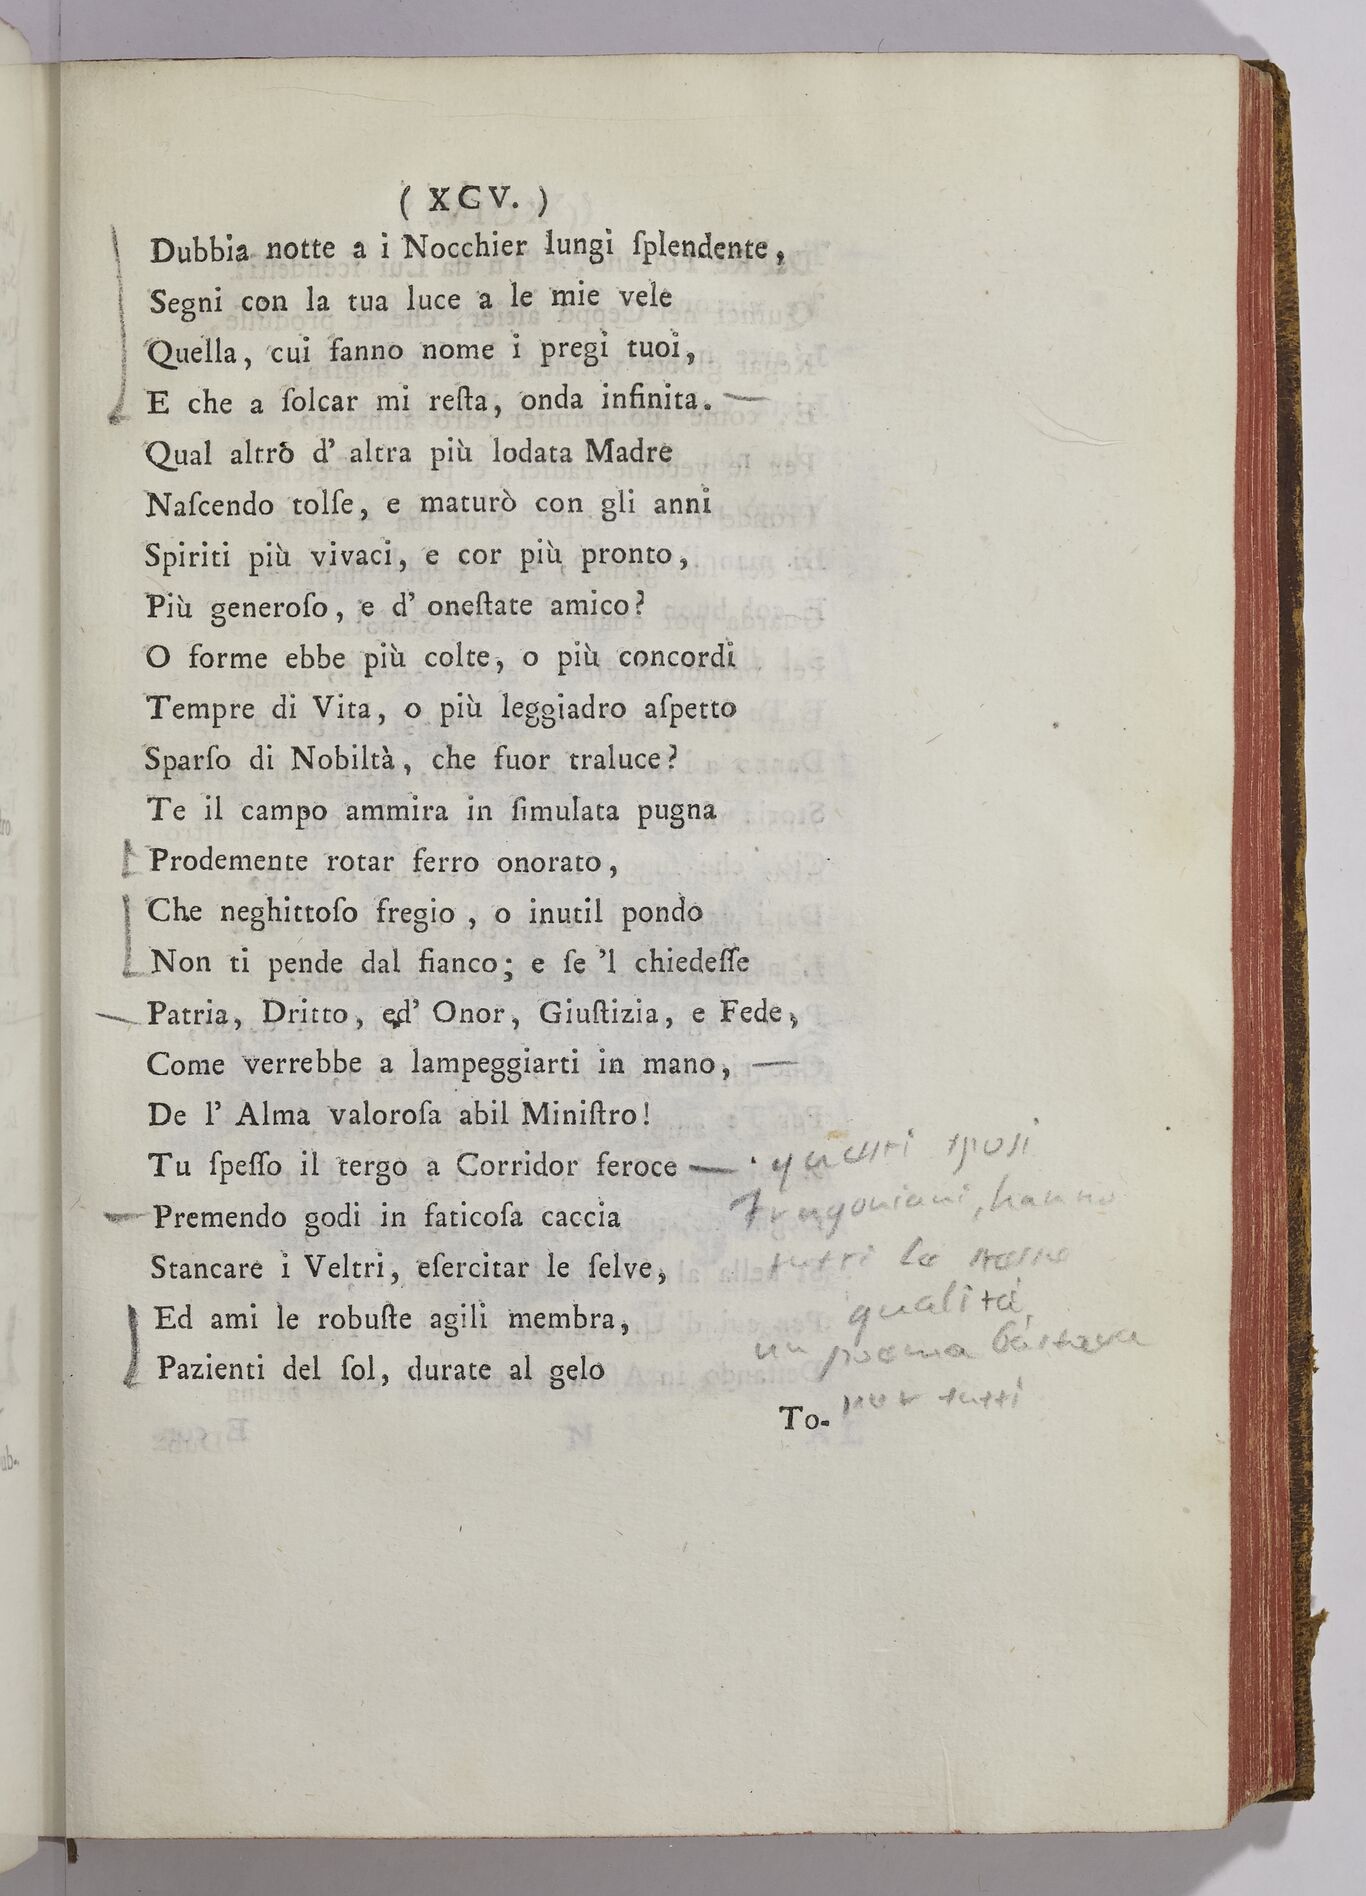 ( XCV. )
Dubbia notte a i Nocchier lungi ſplendente,
Segni con la tua luce a le mie vele
Quella, cui fanno nome i pregi tuoi,
E che a ſolcar mi reſta, onda infinita.
Qual altrò d' altra più lodata Madre
Naſcendo tolſe, e maturò con gli anni
Spiriti più vivaci, e cor più pronto,
Più generoſo, e d' oneſtate amico?
O forme ebbe più colte, o più concordi
Tempre di Vita, o più leggiadro aſpetto
Sparſo di Nobiltà, che fuor traluce?
Te il campo ammira in ſimulata pugna
Prodemente rotar ferro onorato,
Che neghittoſo fregio, o inutil pondo
Non ti pende dal fianco; e ſe 'l chiedeſſe
Patria, Dritto, ed' Onor, Giuſtizia, e Fede,
Come verrebbe a lampeggiarti in mano,
De l' Alma valoroſa abil Miniſtro!
Tu ſpeſſo il tergo a Corridor feroce
Premendo godi in faticoſa caccia
Stancare i Veltri, eſercitar le ſelve,
Ed ami le robuſte agili membra,
Pazienti del ſol, durate al gelo
To-
questi sposi
Frugoniani, hanno
tutti le stesse
qualità,
un poema bastava
per tutti